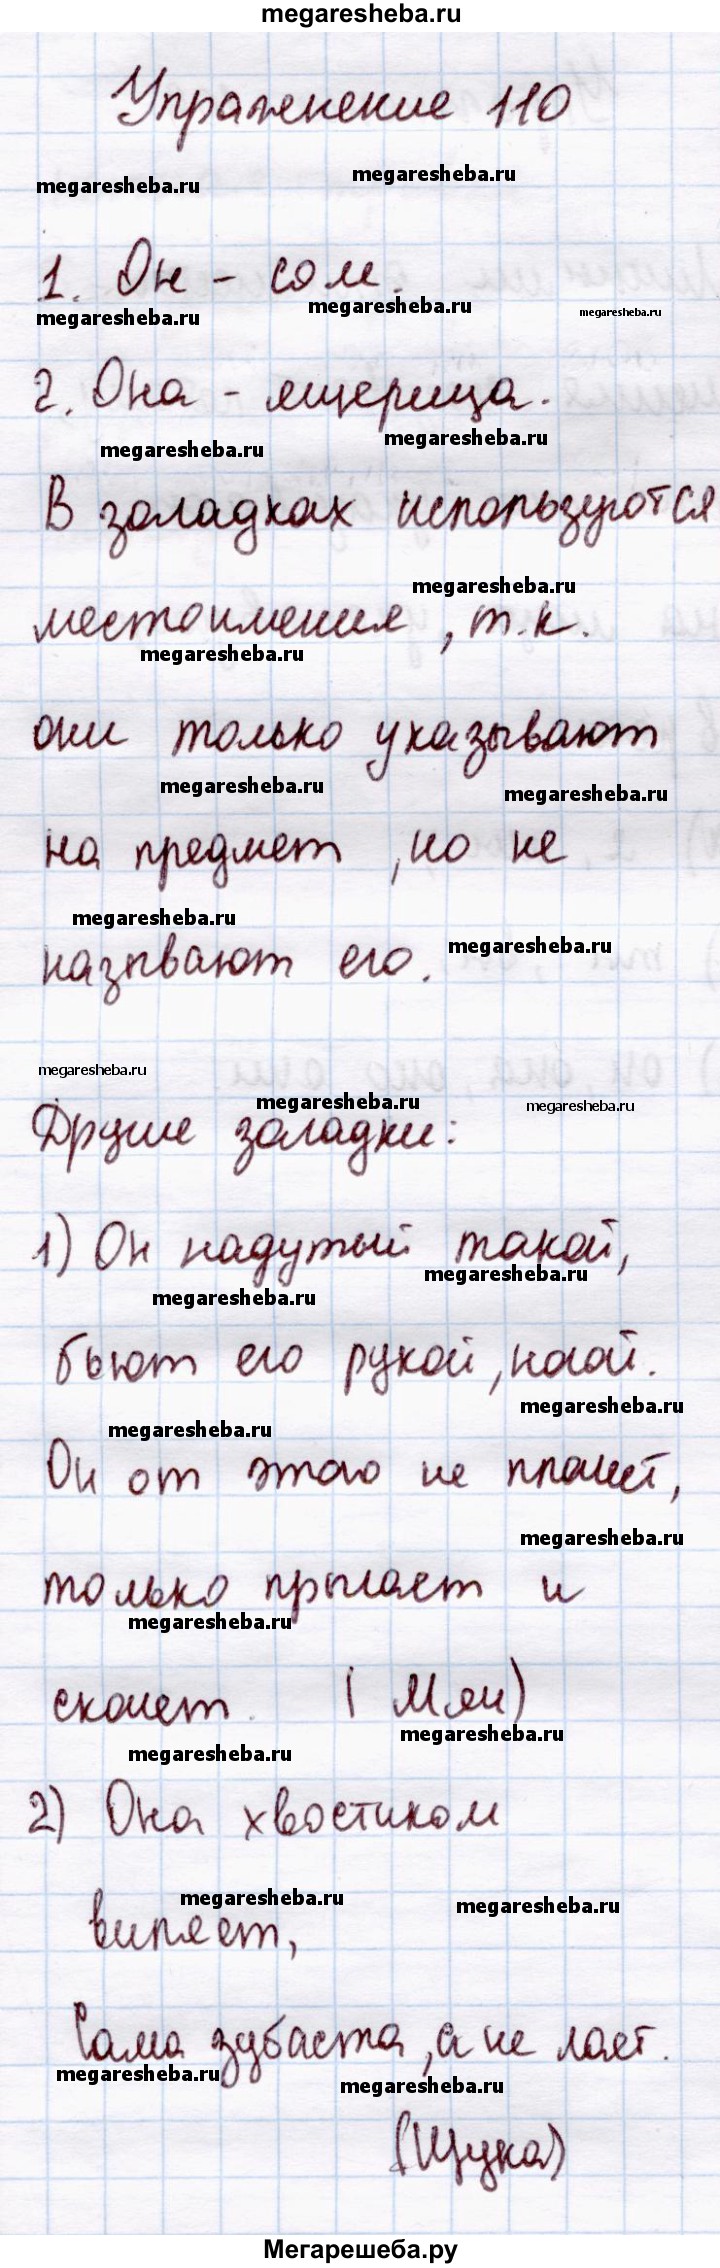 megaresheba.ru
Упражнение 110
megaresheba.ru
megaresheba.ru
1. Он - сом.
megaresheba.ru
megaresheba.ru
megaresheba.ru
2. Она - ящерица.
megaresheba.ru
megaresheba.ru
В загадках используются
megaresheba.ru
местоимения, т.к.
megaresheba.ru
они только указывают
megaresheba.ru
megaresheba.ru
на предмет, но не
megaresheba.ru
megaresheba.ru
называют его.
megaresheba.ru
megaresheba.ru
megaresheba.ru
Другие загадки:
1) Он надутый такой,
megaresheba.ru
megaresheba.ru
бьют его рукой, ногой.
megaresheba.ru
megaresheba.ru
Он от этого не плачет,
megaresheba.ru
только прыгает и
megaresheba.ru
скачет. (Мяч)
megaresheba.ru
megaresheba.ru
2) Она хвостиком
megaresheba.ru
megaresheba.ru
виляет,
Сама зубаста, а не лает.
megaresheba.ru
megaresheba.ru
(Щука)
Мегарешеба.ру